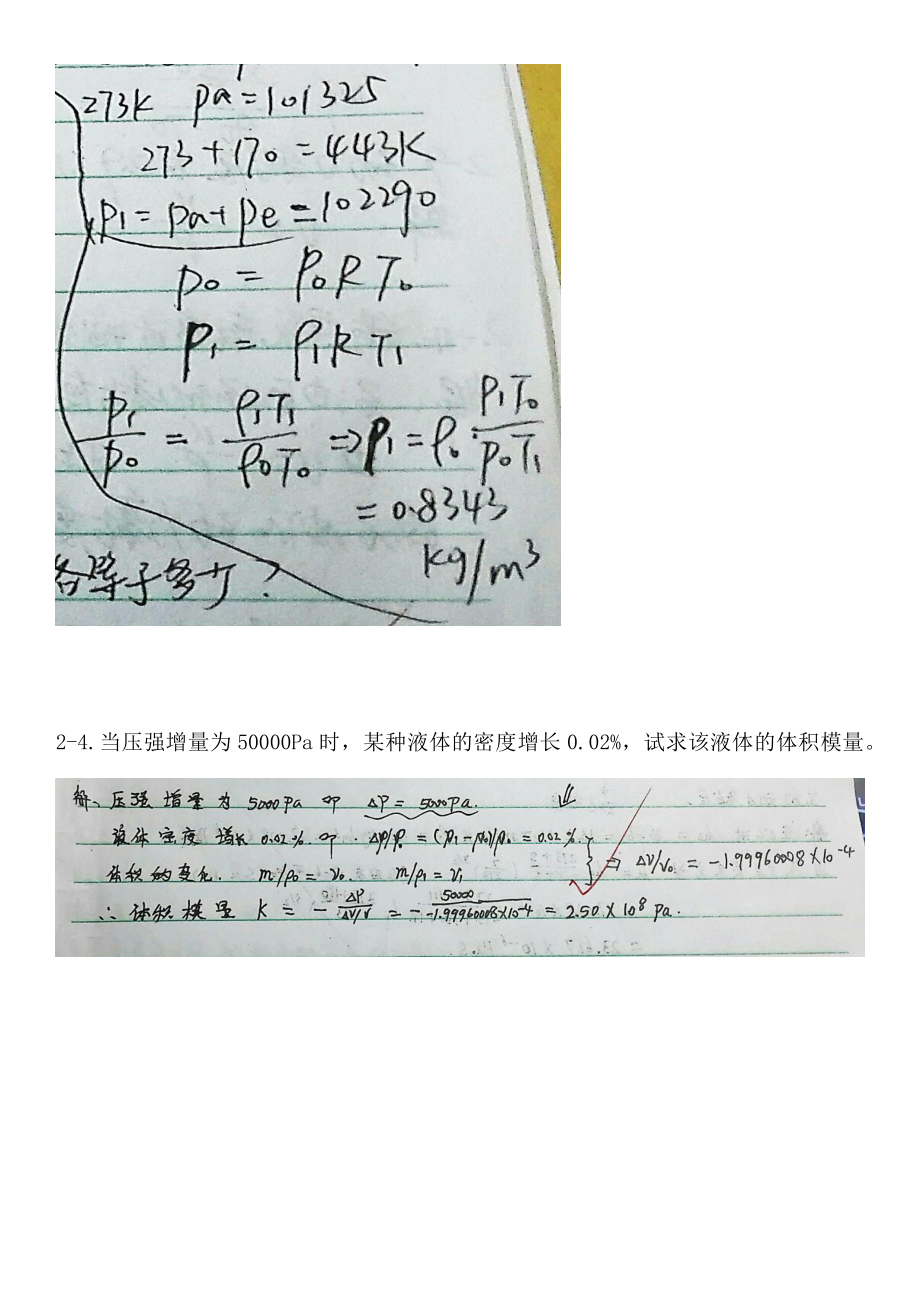 273K Pa=101325
273+170=443K
P₁=Pa+Pe=102290
P₀=ρ₀RT₀
P₁=ρ₁RT₁
P₁/P₀=ρ₁T₁/ρ₀T₀⇒ρ₁=ρ₀·P₁T₀/P₀T₁
=0.8343
kg/m³
各等于多少?
2-4.当压强增量为50000Pa时，某种液体的密度增长0.02%，试求该液体的体积模量。
解、压强增量为5000Pa 即 ΔP=5000Pa.
液体密度增长0.02% 即 Δρ/ρ₀=(ρ₁-ρ₀)/ρ₀=0.02%.
体积的变化. m/ρ₀=V₀ m/ρ₁=V₁ ⇒ ΔV/V₀=-1.99960008×10⁻⁴
∴体积模量 K=-ΔP/(ΔV/V)=-50000/(-1.99960008×10⁻⁴)=2.50×10⁸Pa.